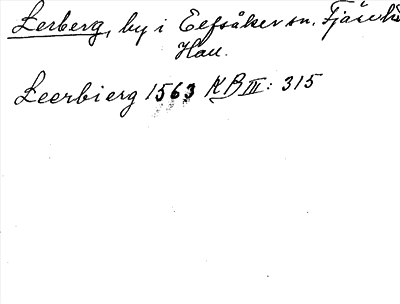 Lerberg, by i Elfsåker sn. Fjärehd
Hall.
Leerbierg 1563 KB III: 315